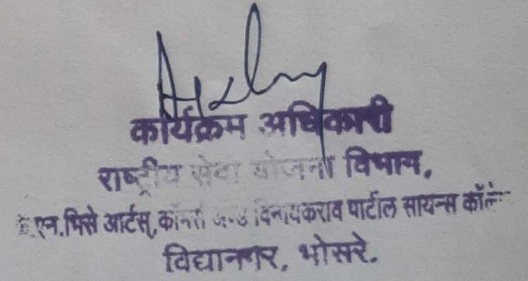 कार्यक्रम अधिकारी
राष्ट्रीय सेवा योजना विभाग,
एन.भिसे आर्टस्, कॉमर्स अन्ड विनायकराव पाटील सायन्स कॉले
विद्यानगर, भोसरे.